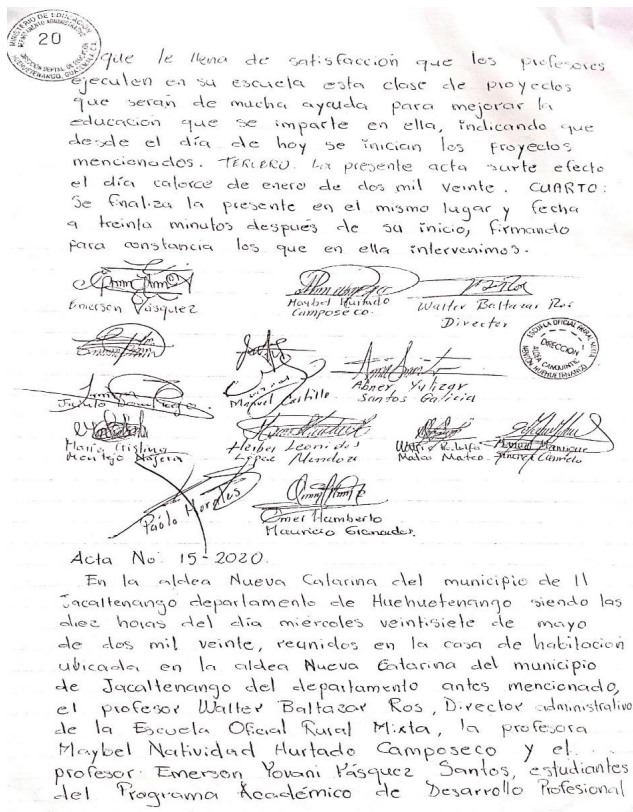 MINISTERIO DE EDUCACIÓN
20
HUEHUETENANGO, GUATEMALA
que le llena de satisfacción que los profesores
ejecuten en su escuela esta clase de proyectos
que serán de mucha ayuda para mejorar la
educación que se imparte en ella, indicando que
desde el día de hoy se inician los proyectos
mencionados. TERCERO. La presente acta surte efecto
el día catorce de enero de dos mil veinte. CUARTO:
Se finaliza la presente en el mismo lugar y fecha
a treinta minutos después de su inicio, firmando
para constancia los que en ella intervenimos.
Emerson Vásquez
Maybel Hurtado
Camposeco.
Walter Baltazar Ros
Director
ESCUELA OFICIAL RURAL MIXTA
DIRECCIÓN
Manuel Castillo
Abner Yulizar
Santos Galicia
María Cristina
Montejo
Heiber Leonidos
López Mendoza
Mateo Mateo.
Paolo Morales
Omer Humberto
Mauricio Granados.
Acta No. 15-2020.
En la aldea Nueva Catarina del municipio de
Jacaltenango departamento de Huehuetenango siendo las
diez horas del día miércoles veintisiete de mayo
de dos mil veinte, reunidos en la casa de habitación
ubicada en la aldea Nueva Catarina del municipio
de Jacaltenango del departamento antes mencionado,
el profesor Walter Baltazar Ros, Director administrativo
de la Escuela Oficial Rural Mixta, la profesora
Maybel Natividad Hurtado Camposeco y el
profesor Emerson Yovani Vásquez Santos, estudiantes
del Programa Académico de Desarrollo Profesional